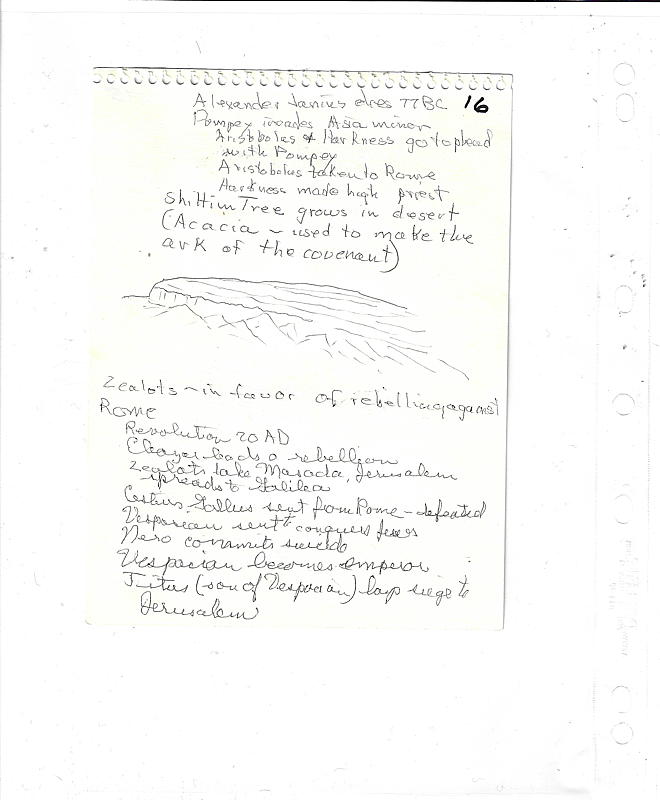 Alexander Janius dies 77BC 16
Pompey invades Asia minor
Aristobolus & Harkness go to plead
with Pompey
Aristobolus taken to Rome
Harkness made high priest
Shittim Tree grows in desert
(Acacia ~ used to make the
ark of the covenant)
Zealots ~ in favor of rebelling against
Rome
Revolution 70 AD
Eleazer leads a rebellion
Zealots take Masada, Jerusalem
spreads to Galilea
Cestius Gallus sent from Rome - defeated
Vespasean sent to conquer Jews
Nero commits suicide
Vespacian becomes emperor
Titus (son of Vespacian) lays siege to
Jerusalem